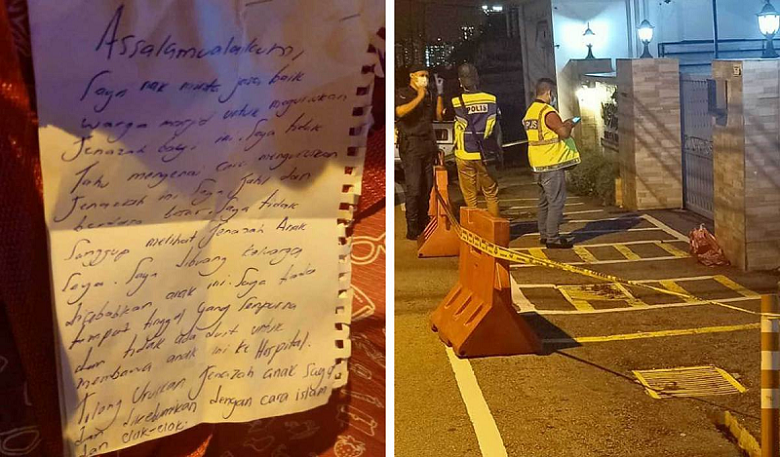 Assalamualaikum,
Saya nak minta jasa baik
warga masjid untuk menguruskan
Jenazah bayi ini. Saya tidak
Tahu mengenai cara menguruskan
Jenazah ini. Saya Jahil dan
berdosa besar. Saya tidak
Sanggup melihat Jenazah Anak
Saya. Saya dibuang keluarga
disebabkan anak ini. Saya tiada
tempat tinggal yang sempurna
dan tidak ada duit untuk
membawa anak ini ke Hospital.
Tolong Uruskan Jenazah anak Saya
dan dikebumikan dengan cara islam
dan elok-elok.
POLIS